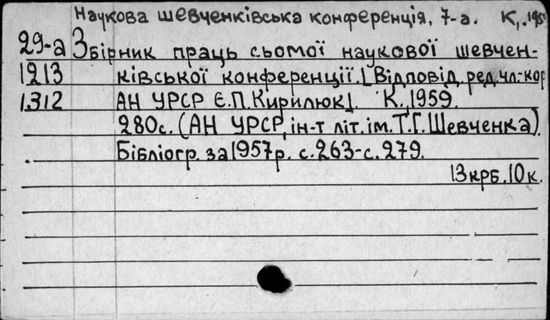 Наукова шевченківська конференція, 7-а. К., 195
29-а Збірник праць сьомої наукової шевчен-
1213 ківської конференції. [Відповід. ред. чл.-кор
1312 АН УРСР Є.П. Кирилюк]. К., 1959.
280с. (АН УРСР, ін-т літ. ім. Т.Г. Шевченка).
Бібліогр. за 1957р. с.263-с.279.
13крб.10к.